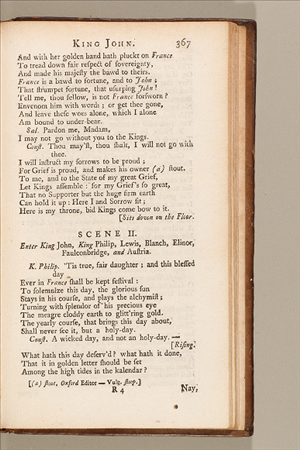 KING JOHN. 367
And with her golden hand hath pluckt on France
To tread down fair respect of sovereignty,
And made his majesty the bawd to theirs.
France is a bawd to fortune, and to John;
That strumpet fortune, that usurping John!
Tell me, thou fellow, is not France forsworn?
Envenom him with words; or get thee gone,
And leave these woes alone, which I alone
Am bound to under-bear.
Sal. Pardon me, Madam,
I may not go without you to the Kings.
Const. Thou may'st, thou shalt, I will not go with
thee.
I will instruct my sorrows to be proud;
For Grief is proud, and makes his owner (a) stout.
To me, and to the State of my great Grief,
Let Kings assemble: for my Grief's so great,
That no Supporter but the huge firm earth
Can hold it up: Here I and Sorrow sit;
Here is my throne, bid Kings come bow to it.
[Sits down on the Floor.
SCENE II.
Enter King John, King Philip, Lewis, Blanch, Elinor,
Faulconbridge, and Austria.
K. Philip. 'Tis true, fair daughter; and this blessed
day
Ever in France shall be kept festival:
To solemnize this day, the glorious sun
Stays in his course, and plays the alchymist;
Turning with splendor of his precious eye
The meagre cloddy earth to glitt'ring gold.
The yearly course, that brings this day about,
Shall never see it, but a holy-day.
Const. A wicked day, and not an holy-day. —
[Rising.
What hath this day deserv'd? what hath it done,
That it in golden letter should be set
Among the high tides in the kalendar?
[(a) stout, Oxford Editor — Vulg. stoop.]
R 4 Nay,